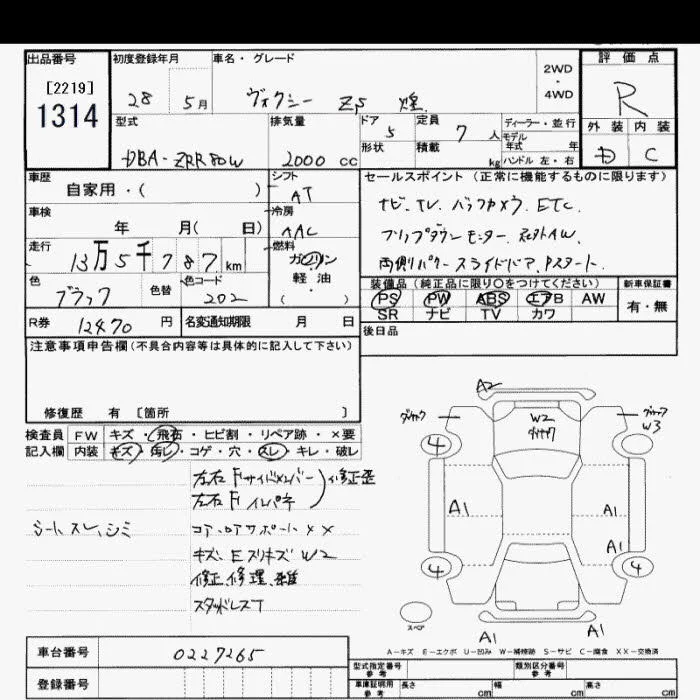 出品番号
[2219]
1314
初度登録年月
28 5月
車名・グレード
ヴォクシー ZS 煌
2WD
・
4WD
評価点
R
外装 内装
D C
型式
DBA-ZRR80W
排気量
2000 cc
ドア
5
定員
7 人
形状
積載
kg
ディーラー・並行
モデル
年式 年
ハンドル 左・右
車歴
自家用・( )
シフト
AT
車検
年 月( 日)
冷房
AAC
走行
13万5千787km
燃料
ガソリン
軽油
( )
色
ブラック
色替
色コード
202
R券
12470 円
名変通知期限 月 日
セールスポイント (正常に機能するものに限ります)
ナビ、TV、バックカメラ、ETC、
フリップダウンモニター、社外AW、
両側パワースライドドア、Pスタート、
装備品(純正品に限り○をつけてください)
PS PW ABS エアB AW
SR ナビ TV カワ
新車保証書
有・無
後日品
注意事項申告欄(不具合内容等は具体的に記入して下さい)
修復歴 有 [箇所 ]
検査員
記入欄
FW キズ・飛石・ヒビ割・リペア跡・×要
内装 キズ・汚レ・コゲ・穴・スレ・キレ・破レ
左右Fサイドメンバー
左右Fインパネ
修正歪
シート スレ、シミ
コアサポート××
キズ、Eスリキズ W2
修正、修理、雑
スタッドレスT
A2
W2
W3
4
4
4
A1
A1
A1
A1
A1
スペア
A-キズ E-エクボ U-凹み W-補修跡 S-サビ C-腐食 XX-交換済
車台番号
0227265
登録番号
型式指定番号
参考
類別区分番号
参考
車庫証明用
参考
長さ cm
幅 cm
高さ cm